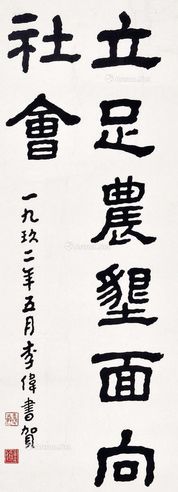 立足農墾面向
社會
一九玖二年五月李偉書賀